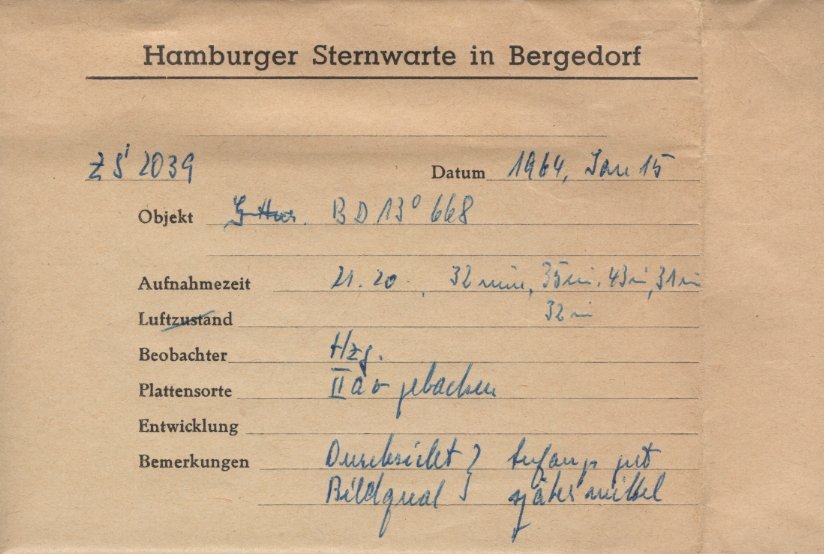 Hamburger Sternwarte in Bergedorf
ZS' 2039 Datum 1964, Jan 15
Objekt BD 13° 668
Aufnahmezeit 21.20. 32 min, 35 m. 43 m, 31 m
Luftzustand 32 m
Beobachter Hzg.
Plattensorte II a o gebacken
Entwicklung
Bemerkungen Durchsicht } Anfangs gut
Bildqual } später mittel